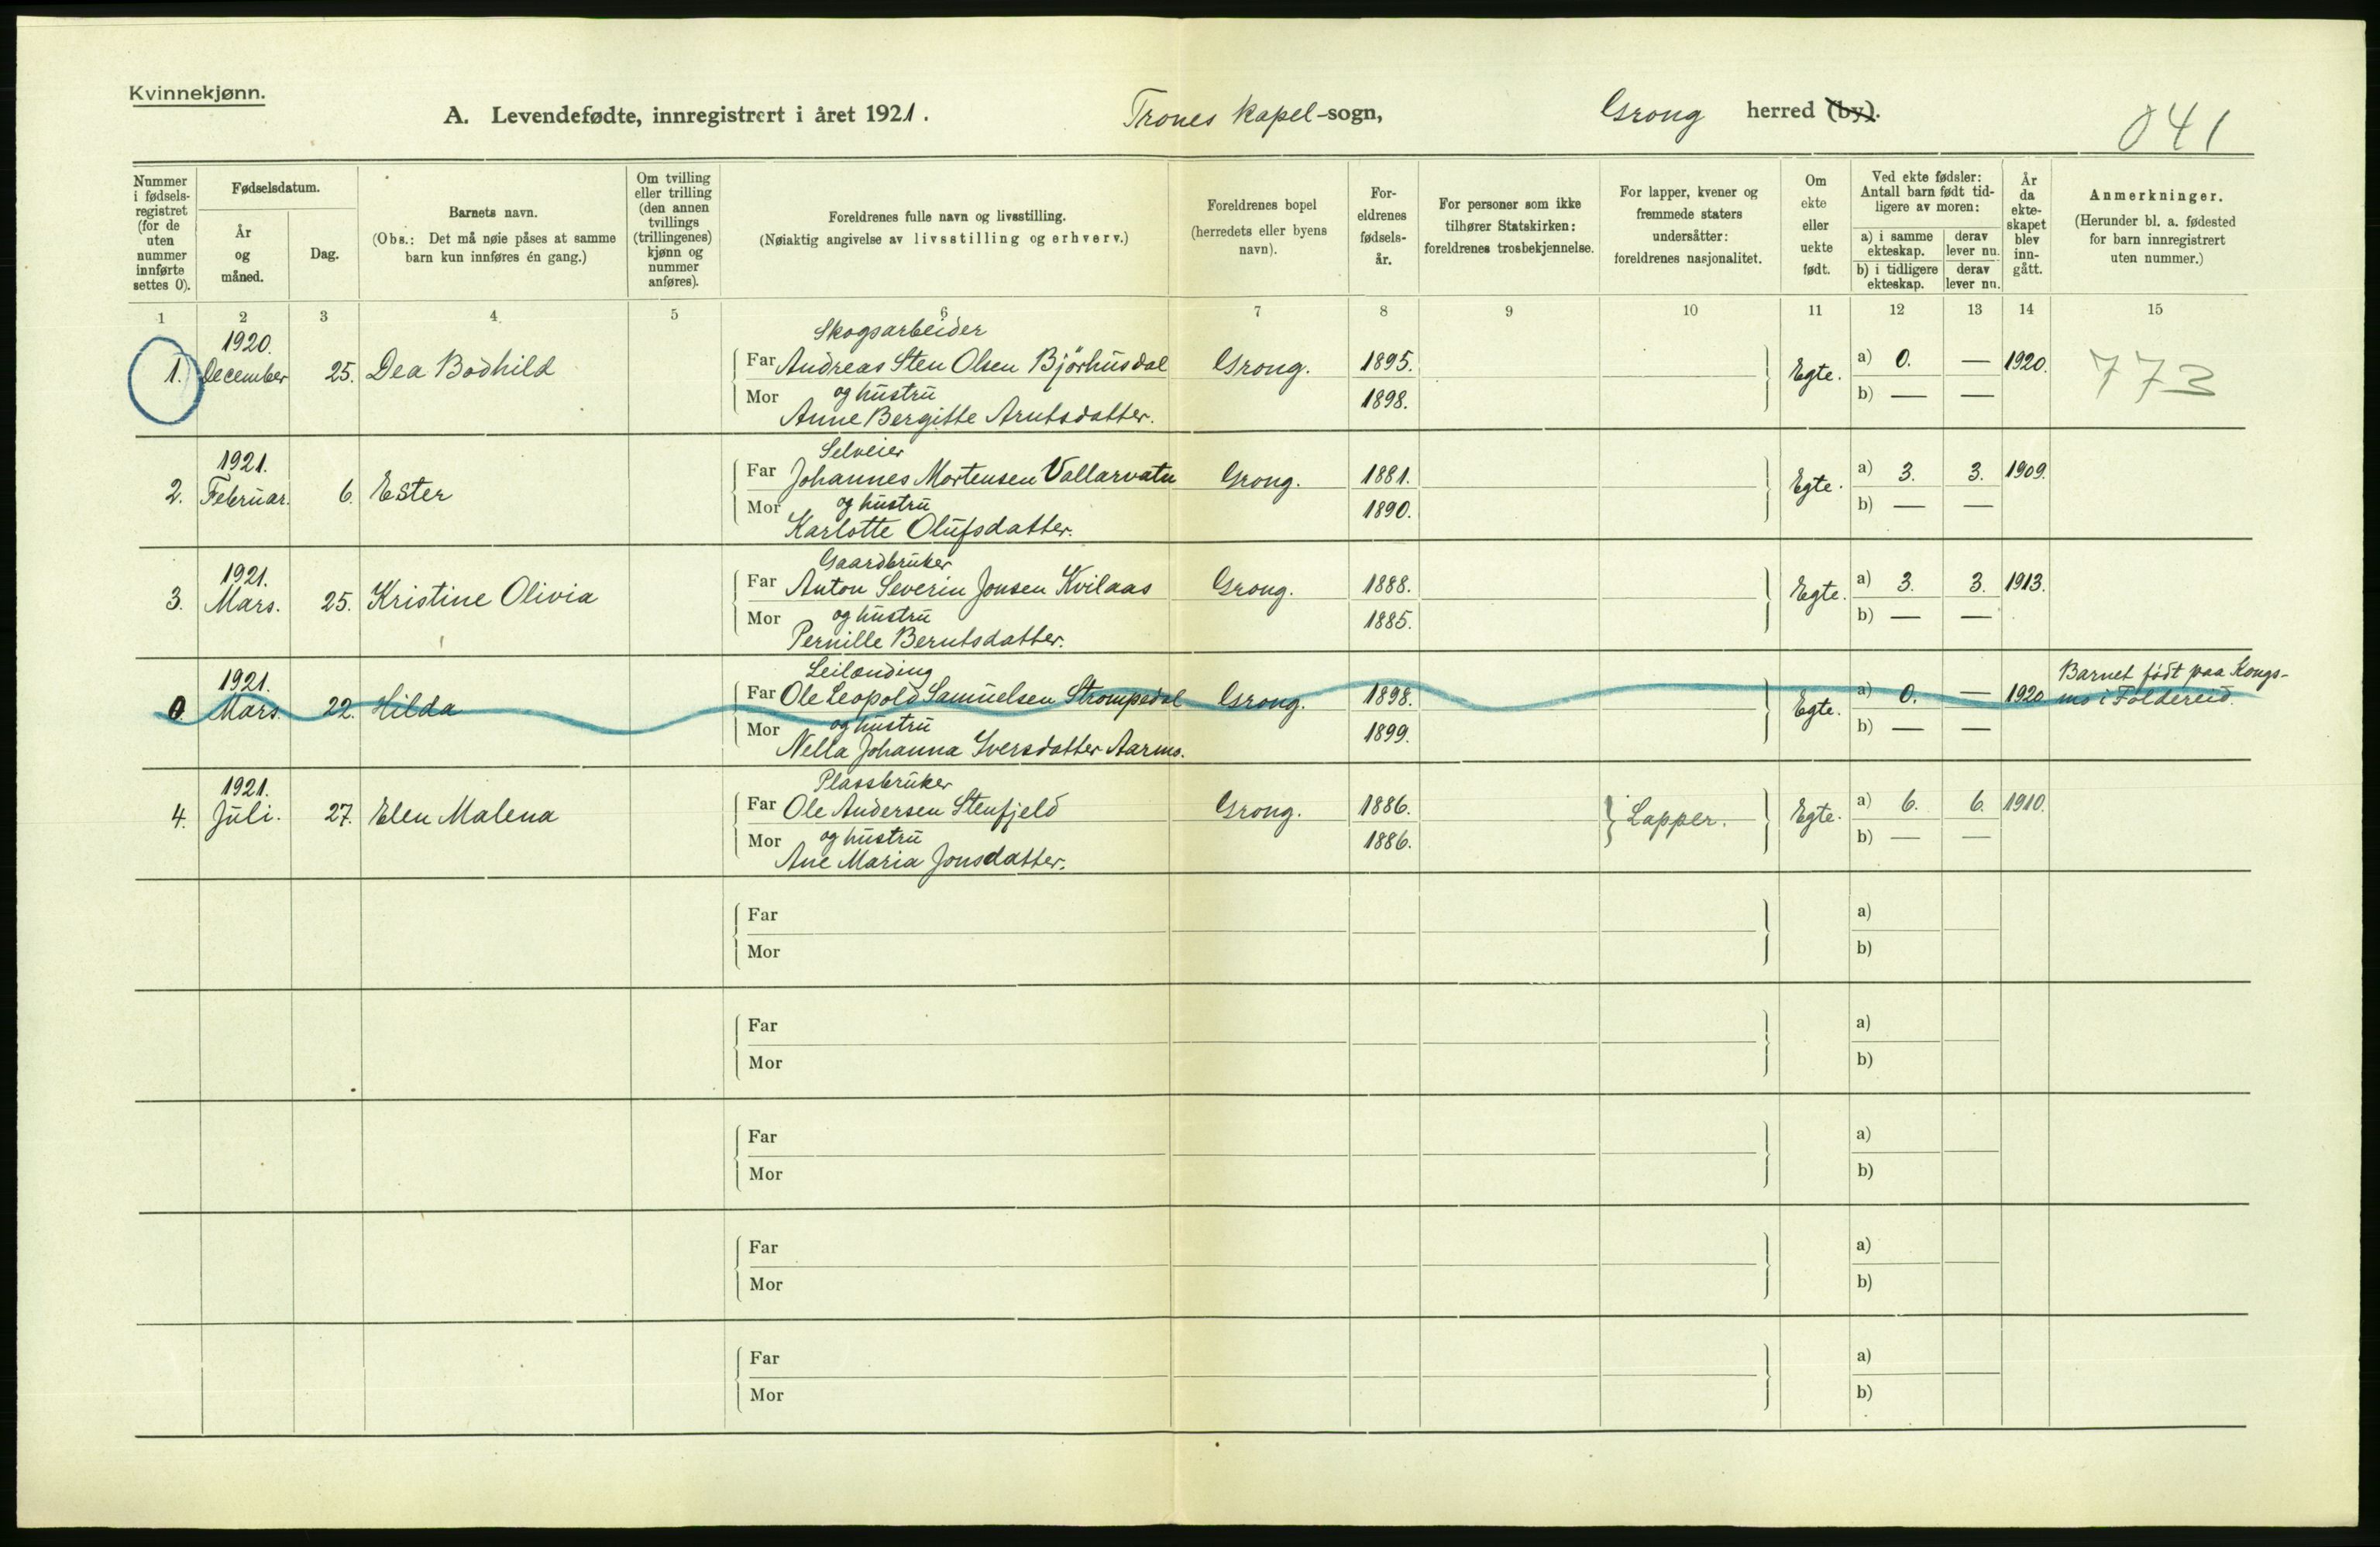 Kvinnekjønn.
A. Levendefødte, innregistrert i året 1921. Trones kapel-sogn, Grong herred (by).
041
Nummer i fødselsregistret (for de uten nummer innførte settes 0).
Fødselsdatum.
År og måned.
Dag.
Barnets navn.
(Obs.: Det må nøie påses at samme barn kun innføres én gang.)
Om tvilling eller trilling (den annen tvillings (trillingenes) kjønn og nummer anføres).
Foreldrenes fulle navn og livsstilling.
(Nøiaktig angivelse av livsstilling og erhverv.)
Foreldrenes bopel (herredets eller byens navn).
For-eldrenes fødsels-år.
For personer som ikke tilhører Statskirken: foreldrenes trosbekjennelse.
For lapper, kvener og fremmede staters undersåtter: foreldrenes nasjonalitet.
Om ekte eller uekte født.
Ved ekte fødsler: Antall barn født tid-ligere av moren:
a) i samme ekteskap. derav lever nu.
b) i tidligere ekteskap. derav lever nu.
År da ekte-skapet blev inn-gått.
Anmerkninger.
(Herunder bl. a. fødested for barn innregistrert uten nummer.)
1 2 3 4 5 6 7 8 9 10 11 12 13 14 15
1920. Skogsarbeider
1. December 25. Dea Bodhild Far Andreas Sten Olsen Bjørhusdal Grong. 1895. Egte. a) 0. — 1920. 773
Mor og hustru 1898. b) — —
Anne Bergitte Arntsdatter.
1921. Selveier
2. Februar. 6. Ester Far Johannes Mortensen Vallarvatn Grong. 1881. Egte. a) 3. 3. 1909.
Mor og hustru 1890. b) — —
Karlotte Olufsdatter.
1921. Gaardbruker
3. Mars. 25. Kristine Olivia Far Anton Severin Jonsen Kvilaas Grong. 1888. Egte. a) 3. 3. 1913.
Mor og hustru 1885. b) — —
Pernille Berntsdatter.
1921. Leilænding Barnet født paa Kongs-
0 Mars. 22. Hilda Far Ole Leopold Samuelsen Strompedal Grong. 1898. Egte. a) 0. — 1920 mo i Foldereid.
Mor og hustru 1899. b) — —
Nella Johanna Iversdatter Aarmo.
1921. Plassbruker
4. Juli. 27. Elen Malena Far Ole Andersen Stenfjeld Grong. 1886. Lapper. Egte. a) 6. 6. 1910.
Mor og hustru 1886. b) — —
Ane Maria Jonsdatter.
Far a)
Mor b)
Far a)
Mor b)
Far a)
Mor b)
Far a)
Mor b)
Far a)
Mor b)